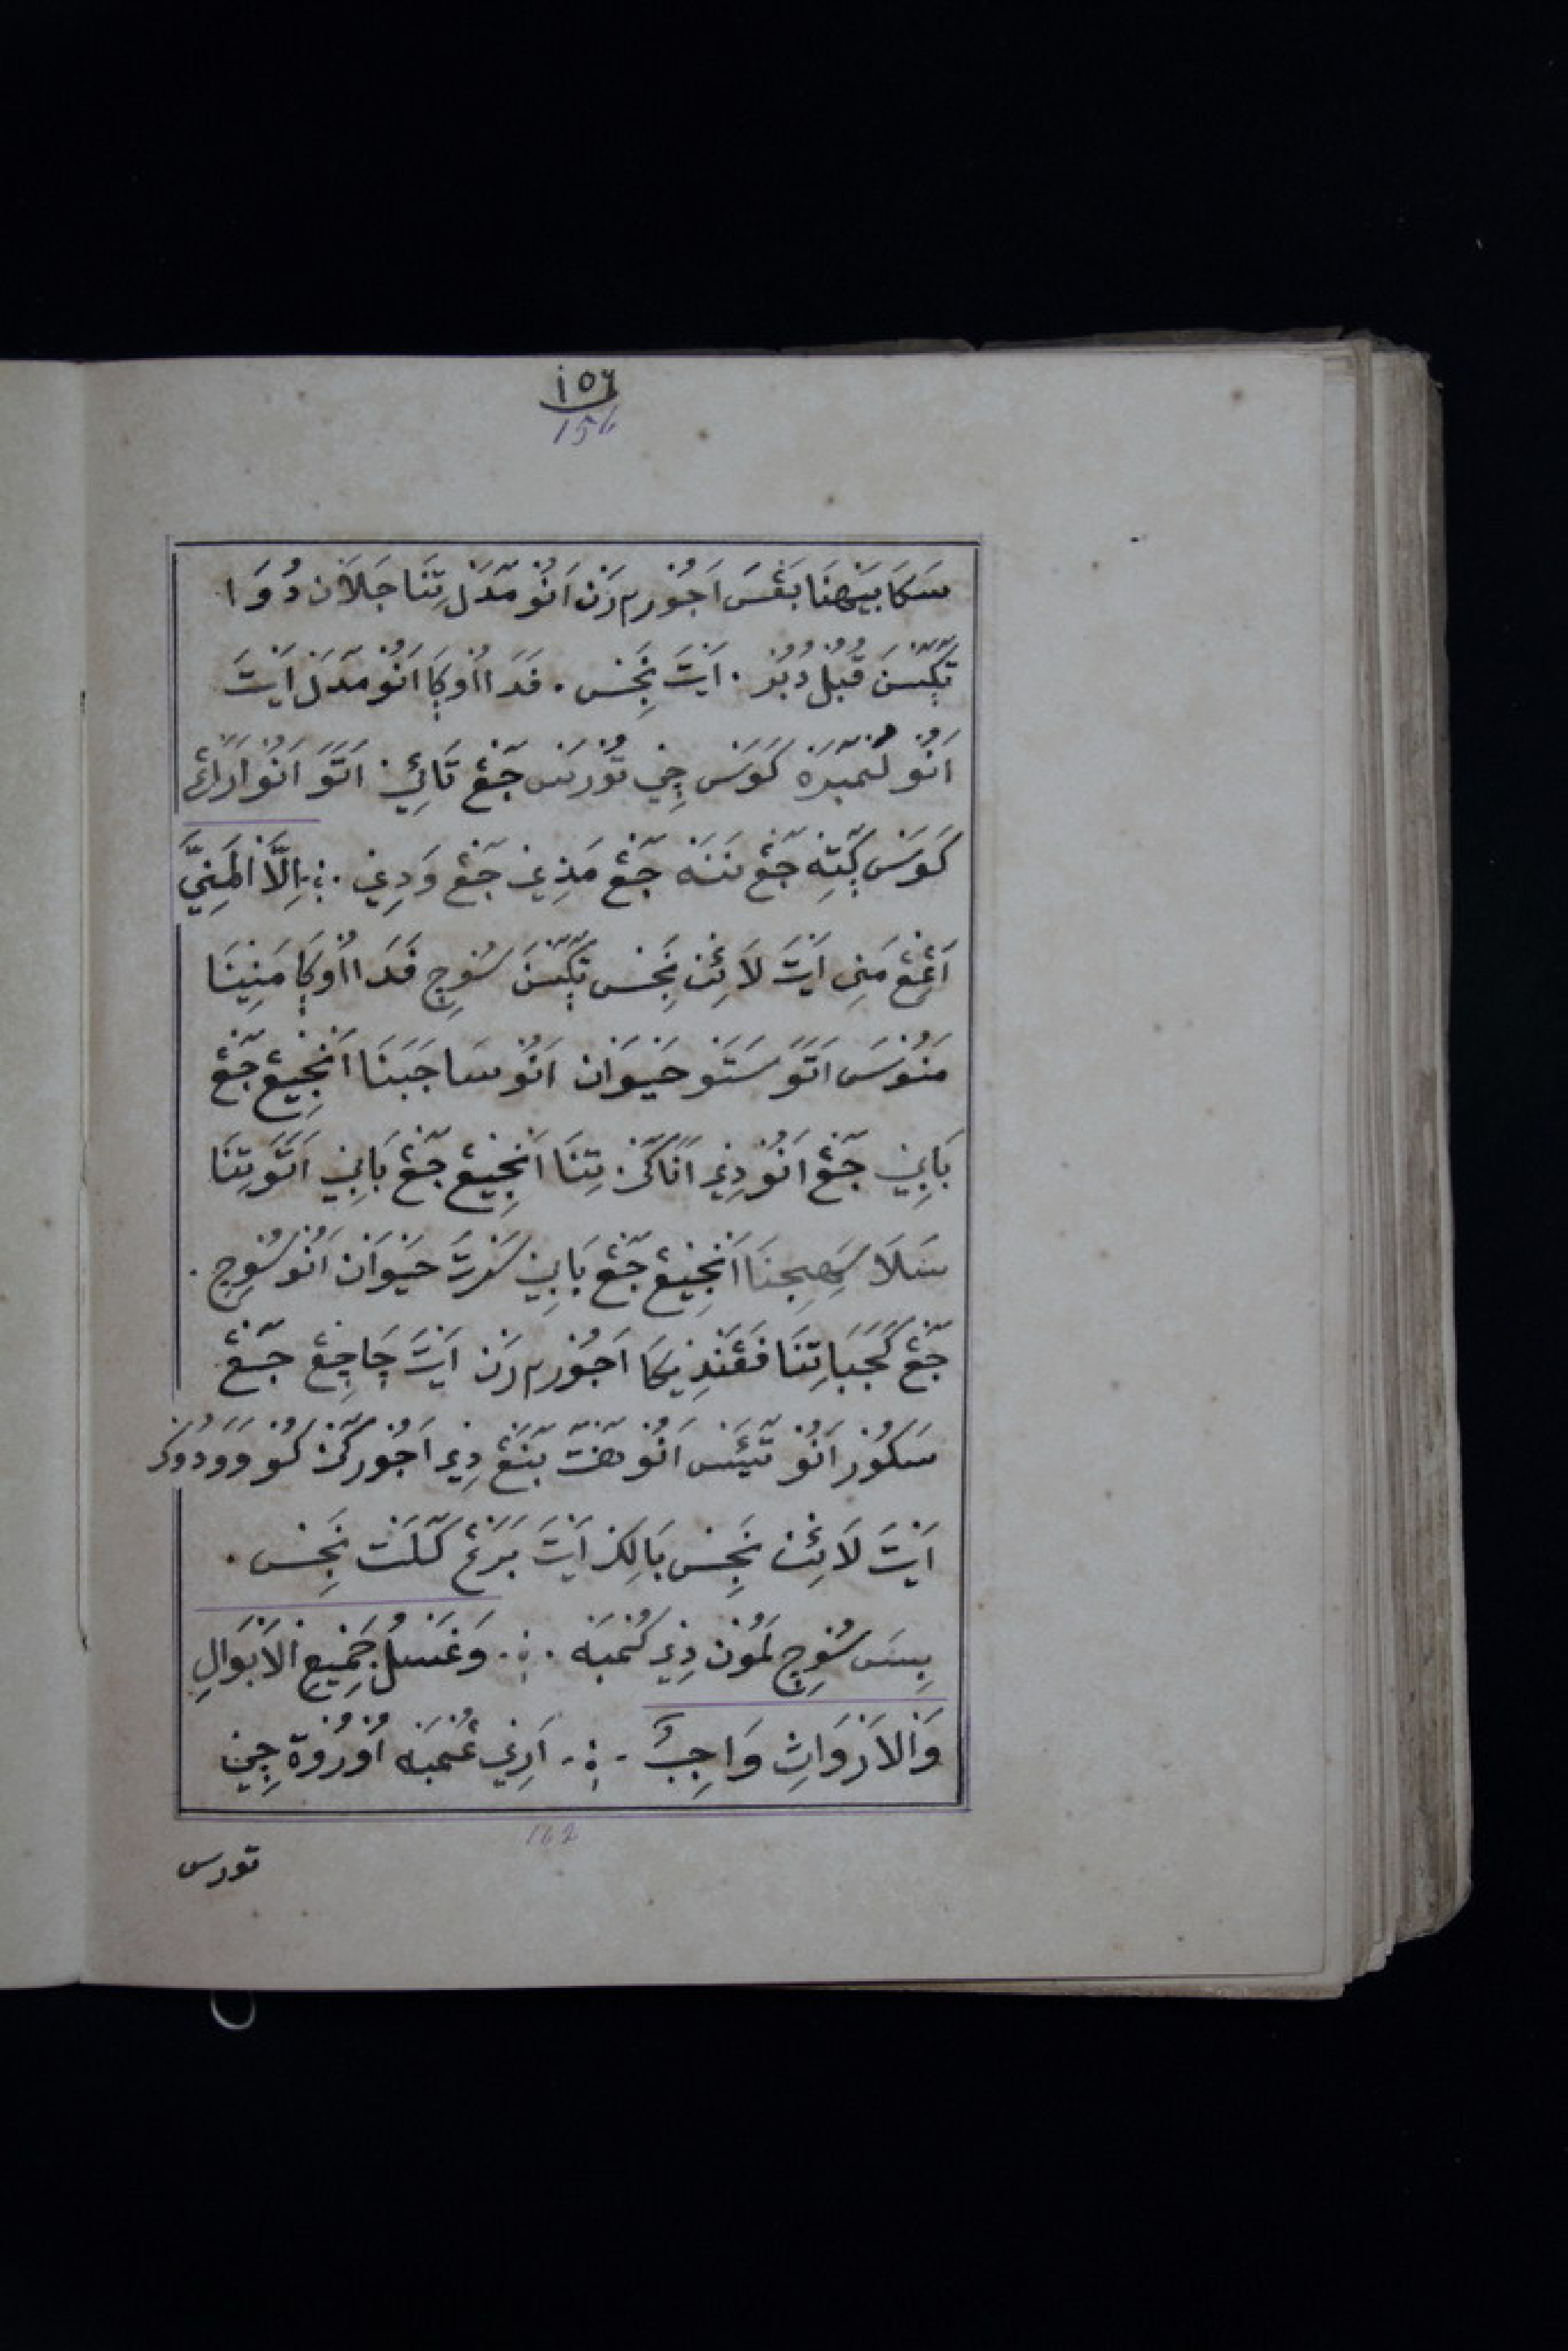 ١٥٦
156
سَكَا بَيَهنَا بَڠسَ اَجُوْرم رَنْ اَنُوْ مَدَلْ تِنَا جَلَانْ دُوَا
تَكَسَنَ قُبُلْ دُبُرْ . اَيْتَ نَجِسْ . فَدَا اُوكَا اَنُوْ مَدَلْ اَيْتَ
اَنُوْ لُمْبَرَهْ كَوَسَ چِيْ تُوْرسَ جَڠْ تَائِيْ اَتَوَ اَنُوْ اَرَاڠْ
كَوَسَ كِتِهْ جَڠْ نَنَهْ جَڠْ مَذِيْ جَڠْ وَدِيْ . اِلَّا الْمَنِيَّ
اَڠِڠْ مَنِي اَيْتَ لَائِنْ نَجِسْ تَكَسَنَ سُوْچِ فَدَا اُوكَا مَنِيْنَا
مَنُوْسَ اَتَوَ سَتَوْ حَيَوَانْ اَنُوْ سَاجَبَنَا اَنْجِيْڠْ جَڠْ
بَابِيْ جَڠْ اَنُوْ دِيْ اَنَاكَنْ تِنَا اَنْجِيْڠْ جَڠْ بَابِيْ اَتَوَ تِنَا
سَلَا سَهِجِنَا اَنْجِيْڠْ جَڠْ بَابِيْ سَرتَ حَيَوَانْ اَنُوْ سُوْچِ .
جَڠْ كَجَبَا تِنَا فَڠَنْدِيْكَا اَجُوْرم رَنْ اَيْتَ چَاچِڠْ جَڠْ
سَكُوْرْ اَنُوْ تَيَسْ اَنُوْ هَنْتَ بَنَڠْ دِيْ اَجُوْركَنْ كُوْ وَدُوكْ
اَيْتَ لَائِنْ نَجِسْ بَالِكَنْ اَيْتَ بَرَڠْ كَلَنْتَ نَجِسْ .
بِسَ سُوْچِ لَمُوْنْ دِيْ كُمْبَهْ . وَغَسْلُ جَمِيْعِ الْاَبْوَالِ
وَالْاَرْوَاثِ وَاجِبٌ . اَرِيْ ڠُمْبَهْ اُوْرُوَةْ چِيْ
162
تورس